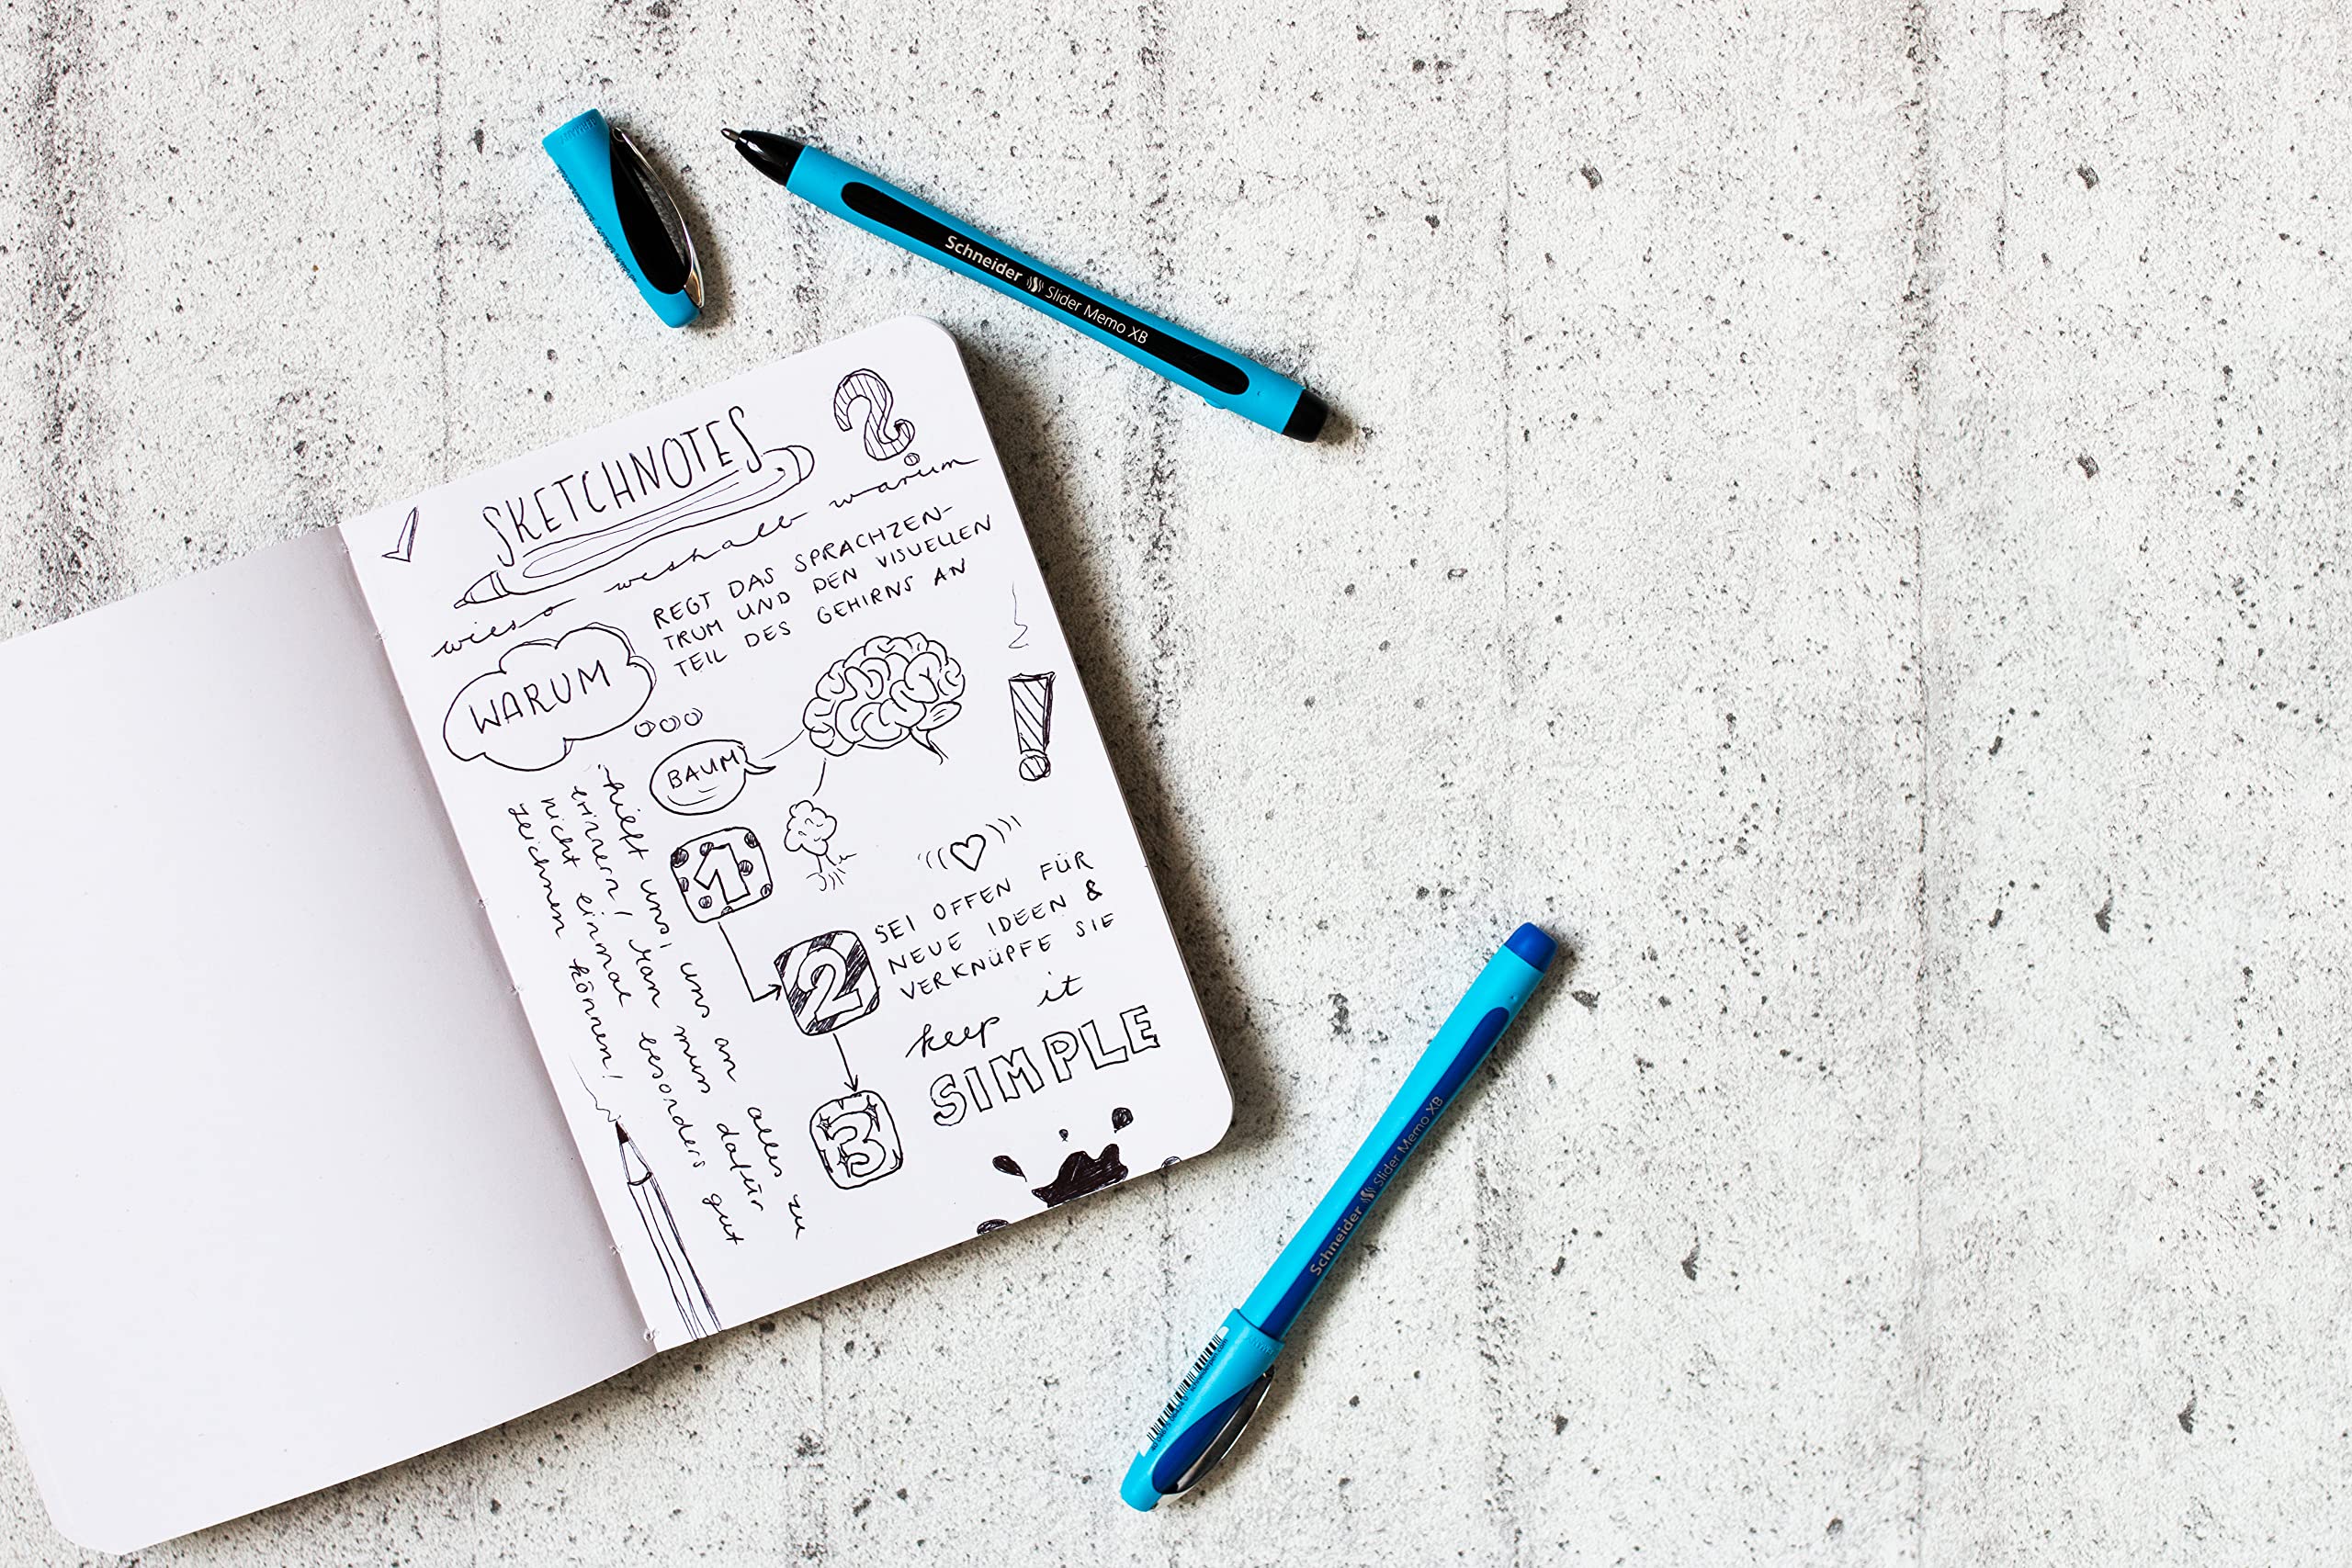 Schneider Slider Memo XB
SKETCHNOTES
wieso weshalb warum
WARUM
REGT DAS SPRACHZEN-
TRUM UND DEN VISUELLEN
TEIL DES GEHIRNS AN
BAUM
1
SEI OFFEN FÜR
NEUE IDEEN &
VERKNÜPFE SIE
2
keep it
SIMPLE
3
hilft uns, uns an alles zu
erinnern! Man muss dafür
nicht einmal besonders gut
zeichnen können!
Schneider Slider Memo XB